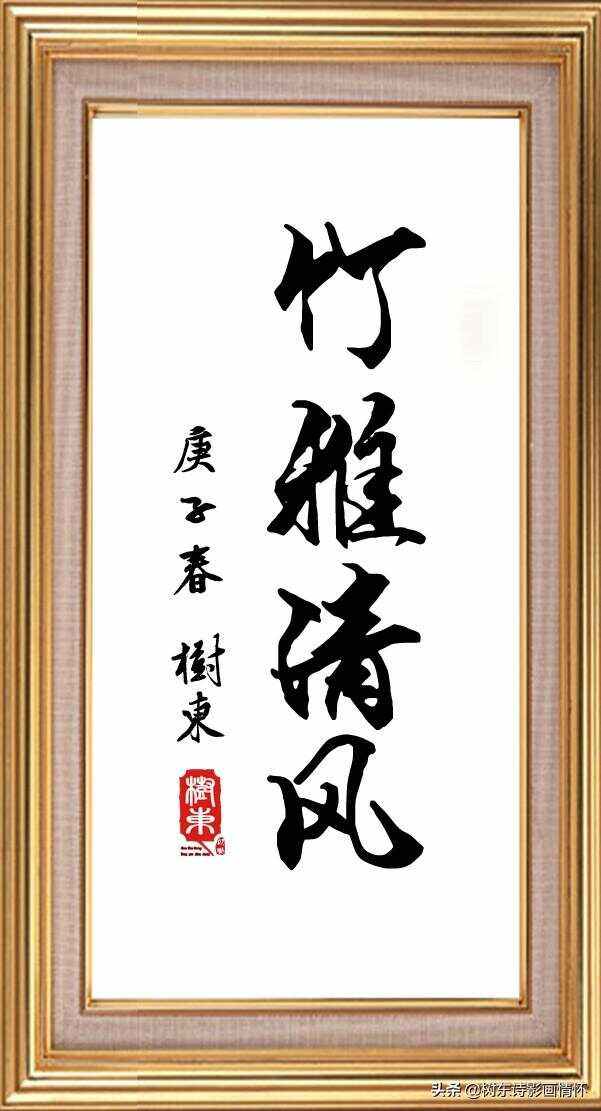 竹雅清风
庚子春 樹東
樹東
头条 @树东诗影画情怀